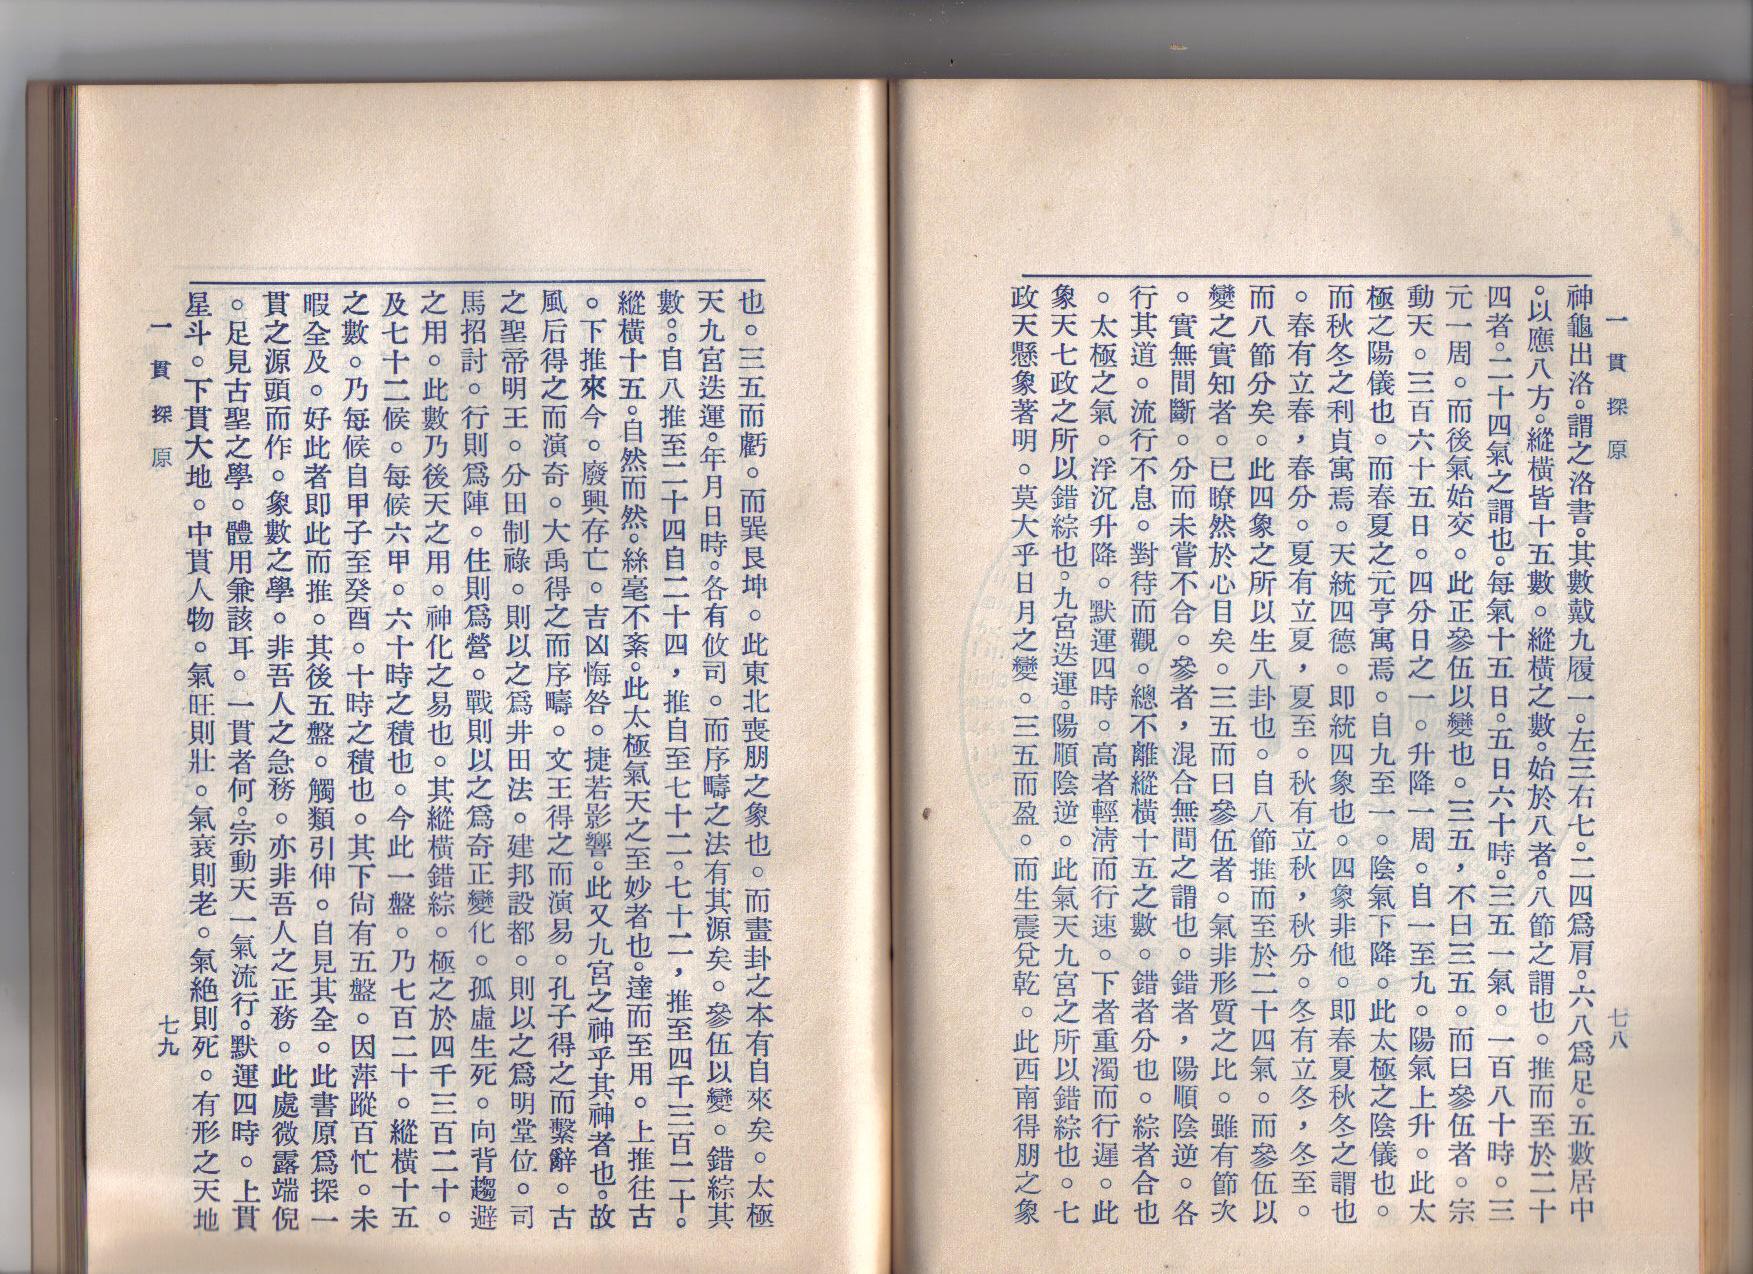 一貫探原
七八
神龜出洛。謂之洛書。其數戴九履一。左三右七。二四爲肩。六八爲足。五數居中
。以應八方。縱橫皆十五數。縱橫之數。始於八者。八節之謂也。推而至於二十
四者。二十四氣之謂也。每氣十五日。五日六十時。三五一氣。一百八十時。三
元一周。而後氣始交。此正參伍以變也。三五，不曰三五。而曰參伍者。宗
動天。三百六十五日。四分日之一。升降一周。自一至九。陽氣上升。此太
極之陽儀也。而春夏之元亨寓焉。自九至一。陰氣下降。此太極之陰儀也。
而秋冬之利貞寓焉。天統四德。即統四象也。四象非他。即春夏秋冬之謂也
。春有立春，春分。夏有立夏，夏至。秋有立秋，秋分。冬有立冬，冬至。
而八節分矣。此四象之所以生八卦也。自八節推而至於二十四氣。而參伍以
變之實知者。已瞭然於心目矣。三五而曰參伍者。氣非形質之比。雖有節次
。實無間斷。分而未嘗不合。參者，混合無間之謂也。錯者，陽順陰逆。各
行其道。流行不息。對待而觀。總不離縱橫十五之數。錯者分也。綜者合也
。太極之氣。浮沉升降。默運四時。高者輕淸而行速。下者重濁而行遲。此
象天七政之所以錯綜也。九宮迭運。陽順陰逆。此氣天九宮之所以錯綜也。七
政天懸象著明。莫大乎日月之變。三五而盈。而生震兌乾。此西南得朋之象
也。三五而虧。而巽艮坤。此東北喪朋之象也。而畫卦之本有自來矣。太極
天九宮迭運。年月日時。各有攸司。而序疇之法有其源矣。參伍以變。錯綜其
數。自八推至二十四自二十四，推自至七十二。七十二，推至四千三百二十。
縱橫十五。自然而然。絲毫不紊。此太極氣天之至妙者也。達而至用。上推往古
。下推來今。廢興存亡。吉凶悔咎。捷若影響。此又九宮之神乎其神者也。故
風后得之而演奇。大禹得之而序疇。文王得之而演易。孔子得之而繫辭。古
之聖帝明王。分田制祿。則以之爲井田法。建邦設都。則以之爲明堂位。司
馬招討。行則爲陣。住則爲營。戰則以之爲奇正變化。孤虛生死。向背趨避
之用。此數乃後天之用。神化之易也。其縱橫錯綜。極之於四千三百二十。
及七十二候。每候六甲。六十時之積也。今此一盤。乃七百二十。縱橫十五
之數。乃每候自甲子至癸酉。十時之積也。其下尙有五盤。因萍蹤百忙。未
暇全及。好此者即此而推。其後五盤。觸類引伸。自見其全。此書原爲探一
貫之源頭而作。象數之學。非吾人之急務。亦非吾人之正務。此處微露端倪
。足見古聖之學。體用兼該耳。一貫者何。宗動天一氣流行。默運四時。上貫
星斗。下貫大地。中貫人物。氣旺則壯。氣衰則老。氣絶則死。有形之天地
一貫探原
七九